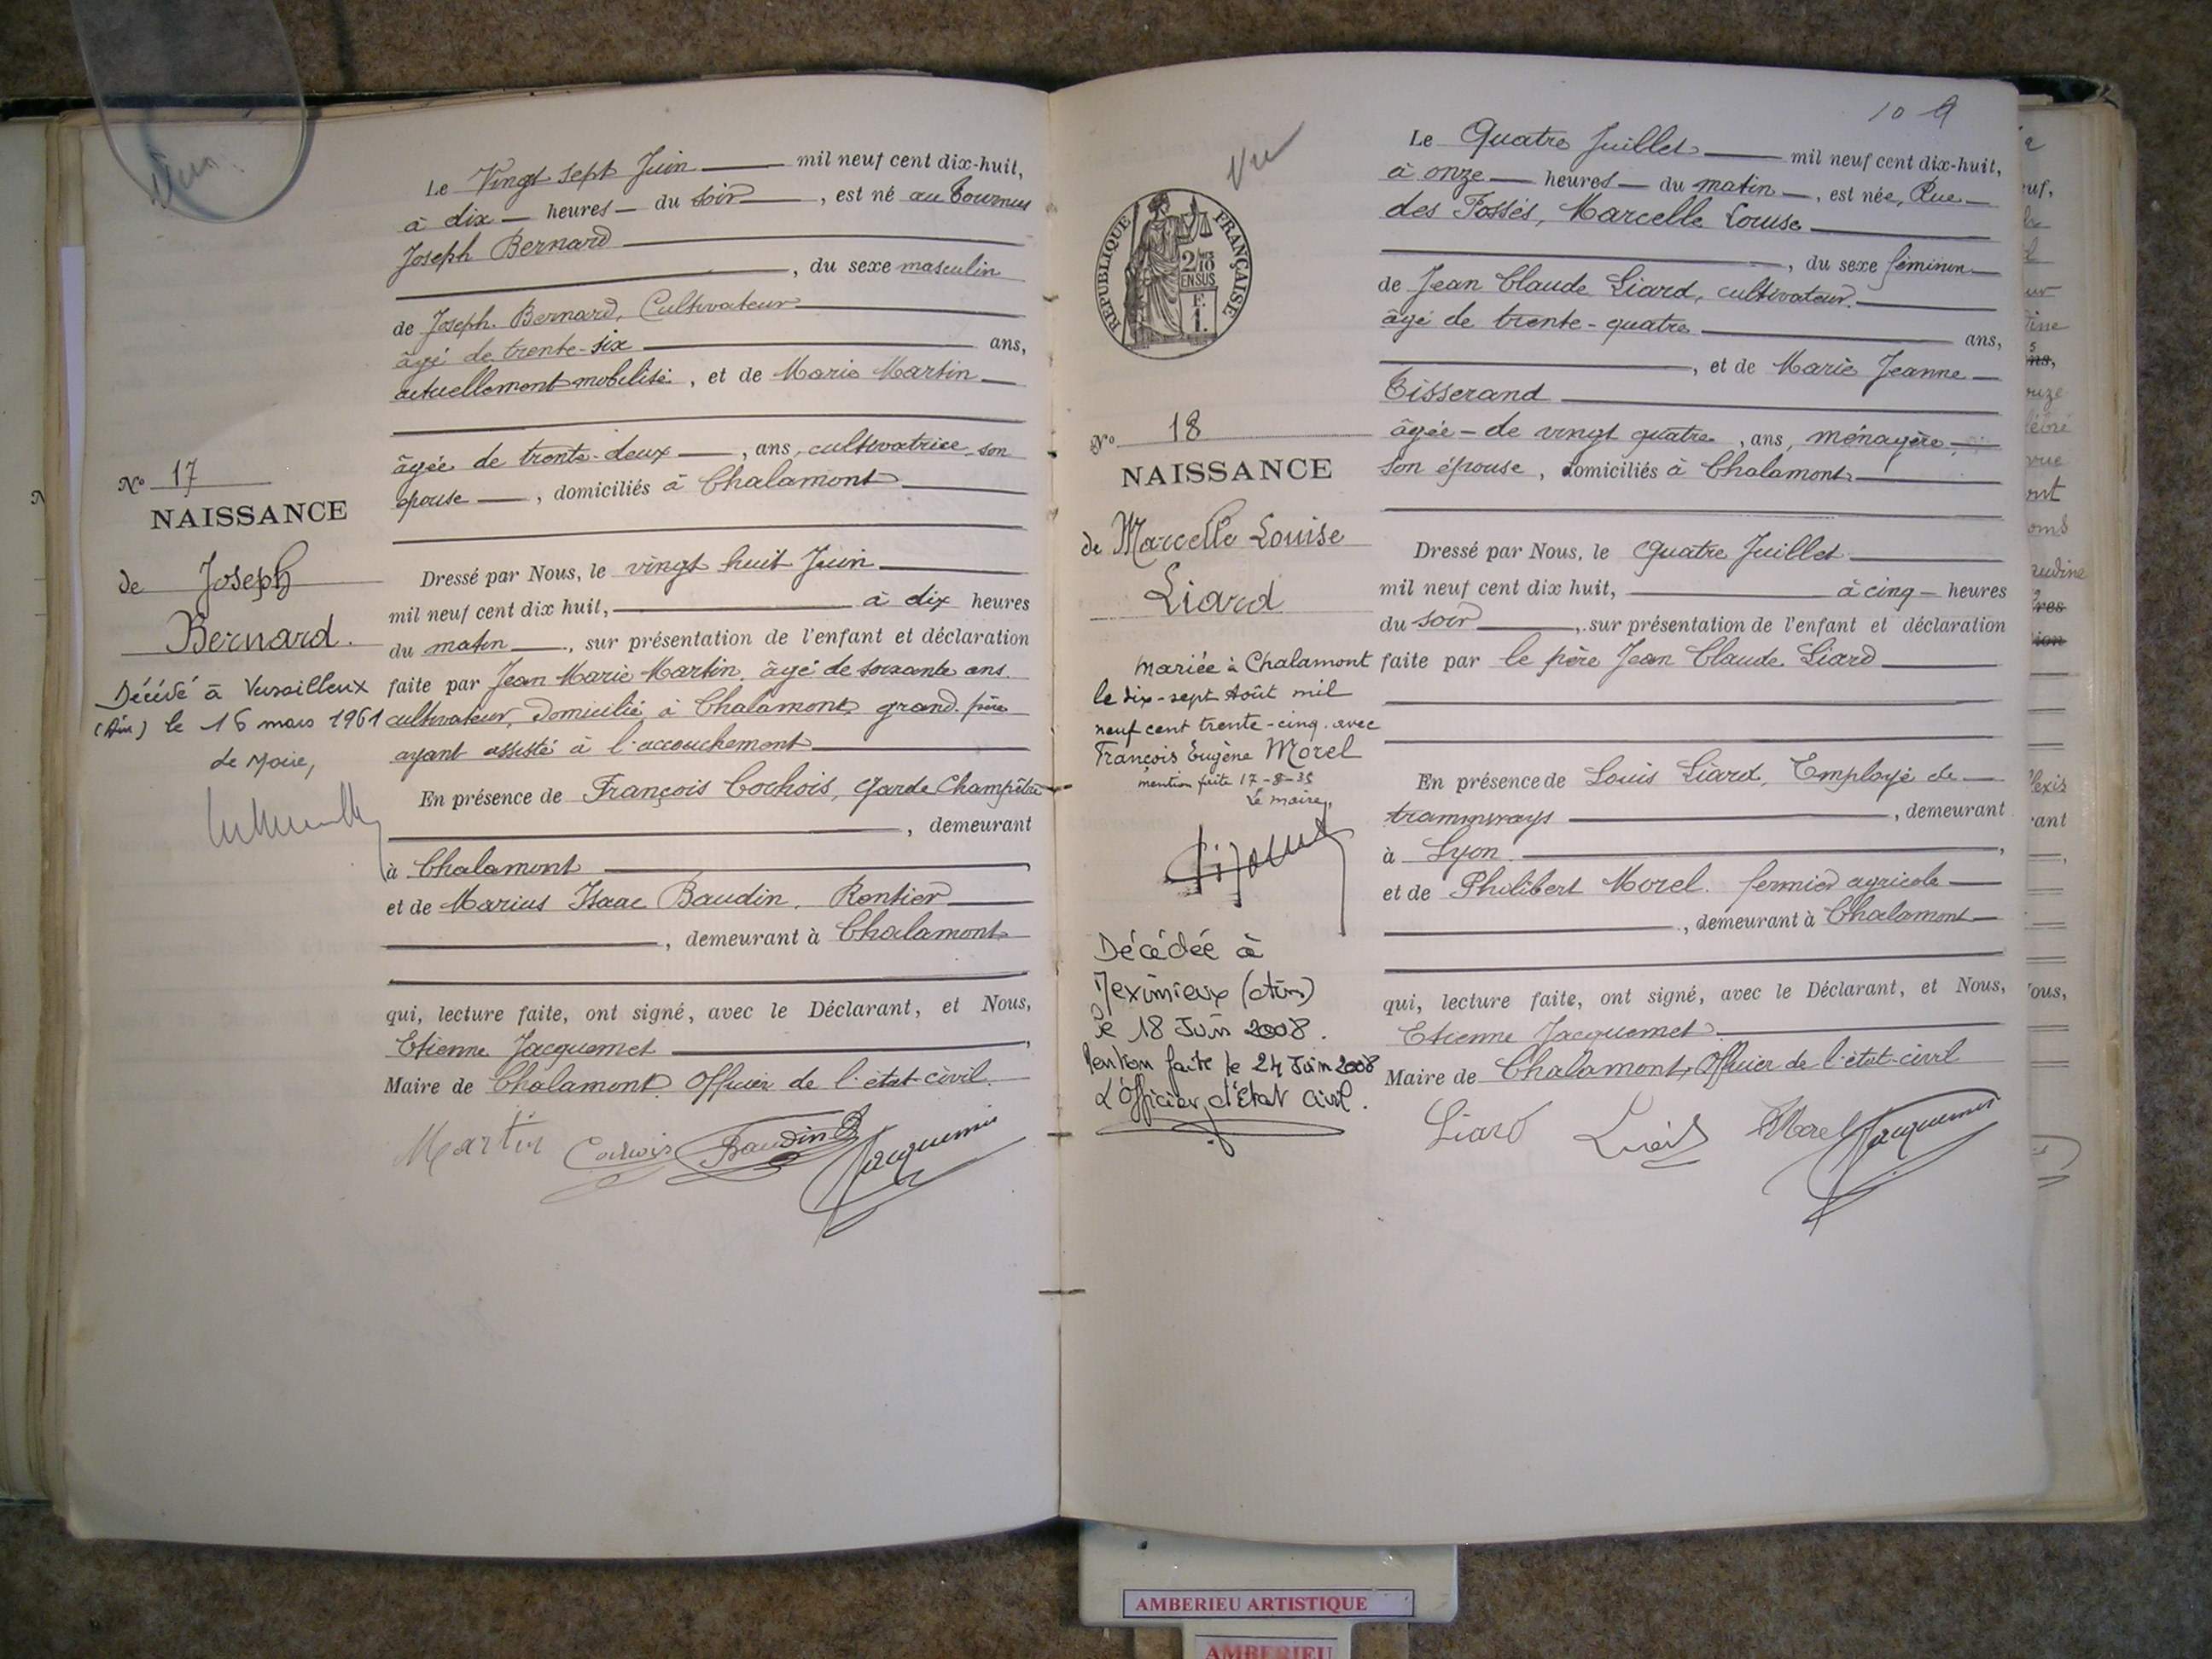 Le Vingt sept Juin mil neuf cent dix-huit,
à dix heures du soir, est né au Tournus
Joseph Bernard
, du sexe masculin
de Joseph Bernard, Cultivateur
âgé de trente-six ans,
actuellement mobilisé, et de Marie Martin
âgée de trente-deux, ans, cultivatrice son
épouse, domiciliés à Chalamont
No 17
NAISSANCE
de Joseph
Bernard.
Décédé à Versailleux
(Ain) le 16 mars 1961
Le Maire,
Dressé par Nous, le vingt huit Juin
mil neuf cent dix huit, à dix heures
du matin, sur présentation de l'enfant et déclaration
faite par Jean Marie Martin, âgé de soixante ans
cultivateur, domicilié à Chalamont, grand-père
ayant assisté à l'accouchement
En présence de François Cochois, Garde Champêtre
, demeurant
à Chalamont
et de Marius Isaac Baudin, Rentier
, demeurant à Chalamont
qui, lecture faite, ont signé, avec le Déclarant, et Nous,
Etienne Jacquemet,
Maire de Chalamont, Officier de l'état-civil.
Martin Cochois Baudin Jacquemet
10 9
Vu
RÉPUBLIQUE FRANÇAISE
2/10
EN SUS
F.
1.
Le Quatre Juillet mil neuf cent dix-huit,
à onze heures du matin, est née, Rue
des Fossés, Marcelle Louise
, du sexe féminin
de Jean Claude Liard, cultivateur
âgé de trente-quatre ans,
, et de Marie Jeanne
Tisserand
âgée de vingt quatre, ans, ménagère,
son épouse, domiciliés à Chalamont
No 18
NAISSANCE
de Marcelle Louise
Liard
Mariée à Chalamont
le dix-sept Août mil
neuf cent trente-cinq avec
François Eugène Morel
mention faite 17-8-35
Le maire,
Décédée à
Meximieux (Ain)
le 18 Juin 2008.
Mention faite le 24 Juin 2008
L'Officier d'Etat Civil.
Dressé par Nous, le Quatre Juillet
mil neuf cent dix huit, à cinq heures
du soir, sur présentation de l'enfant et déclaration
faite par le père Jean Claude Liard
En présence de Louis Liard, Employé de
trammways, demeurant
à Lyon,
et de Philibert Morel, fermier agricole
, demeurant à Chalamont
qui, lecture faite, ont signé, avec le Déclarant, et Nous,
Etienne Jacquemet
Maire de Chalamont, Officier de l'état-civil
Liard Liard Morel Jacquemet
AMBERIEU ARTISTIQUE
AMBERIEU